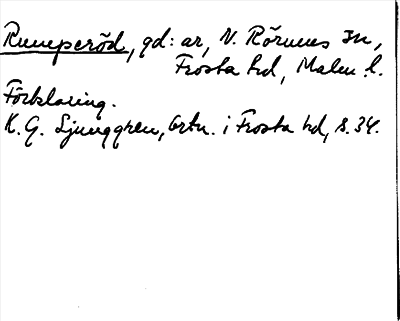 Rumperöd, gd: ar, V. Rörums sn,
Frosta hd, Malm. l.
Förklaring.
K. G. Ljunggren, Ortn. i Frosta hd, s. 34.